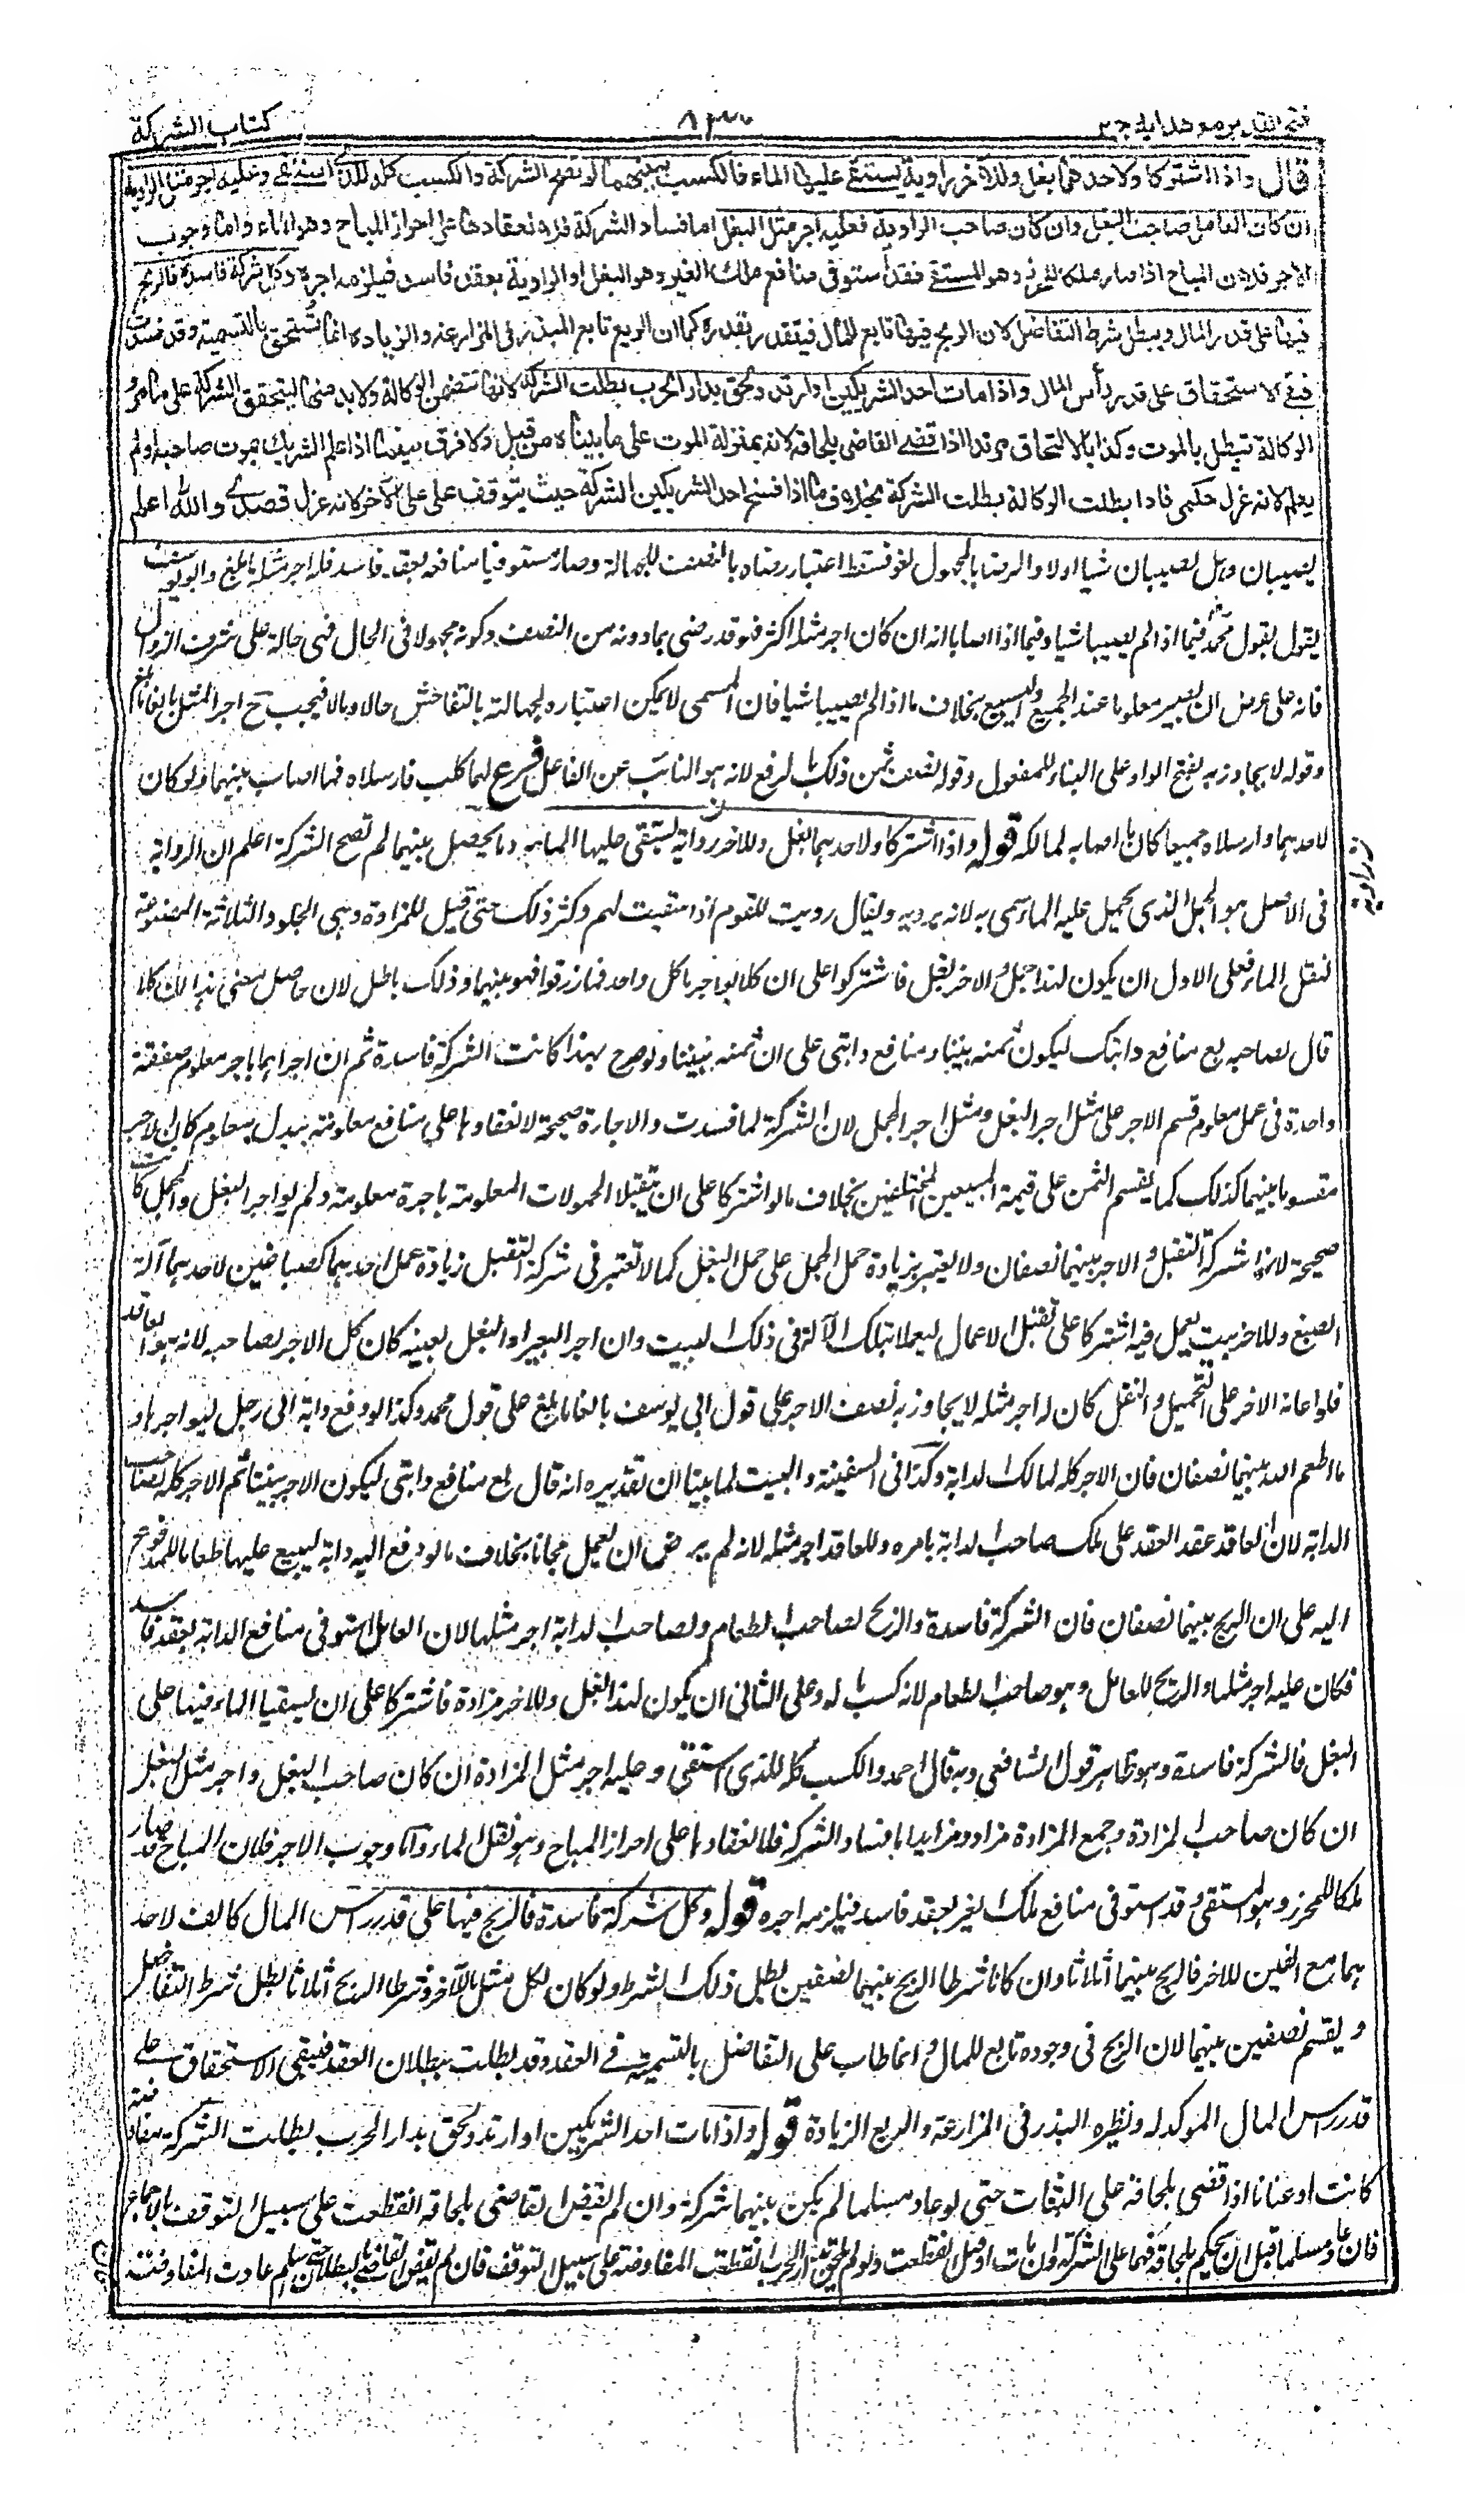 فتح القدير مع هدايه ج ٢
كتاب الشركة
قال واذا اشتركا ولاحدهما بغل وللآخر راوية يستقى عليها الماء فالكسب بينهما لم تصح الشركة والكسب كله للذى استقى وعليه اجر مثل الراوية
ان كان العامل صاحب البغل وان كان صاحب الراوية فعليه اجر مثل البغل اما فساد الشركة فلانعقادها على احراز المباح وهو الماء واما وجوب
الاجر فلان المباح اذا صار ملكا للمحرز وهو المستقى فقد استوفى منافع ملك الغير وهو البغل او الراوية بعقد فاسد فيلزمه اجره وكل شركة فاسدة فالربح
فيها على قدر المال ويبطل شرط التفاضل لان الربح فيها تابع للمال فيتقدر بقدره كما ان الريع تابع للبذر فى المزارعة والزيادة انما تستحق بالتسمية وقد فسدت
فبقى الاستحقاق على قدر رأس المال واذا مات احد الشريكين او ارتد ولحق بدار الحرب بطلت الشركة لانها تتضمن الوكالة ولا بد منها لتحقق الشركة على ما مر و
الوكالة تبطل بالموت وكذا بالالتحاق مرتدا اذا قضى القاضى بلحاقه لانه بمنزلة الموت على ما بيناه من قبل ولا فرق بينما اذا علم الشريك بموت صاحبه او لم
يعلم لانه عزل حكمى فاذا بطلت الوكالة بطلت الشركة بخلاف ما اذا فسخ احد الشريكين الشركة حيث يتوقف على علم الآخر لانه عزل قصدى والله اعلم
يصيبان وهل يصيبان شيا اولا والرضا بالمجهول لغو فسقط اعتبار رضاه بالنصف للجهالة وصار مستوفيا منافعه بعقد فاسد فله اجر مثله بالغا ما بلغ وابو يوسف
يقول بقول محمد فيما اذا لم يصيبا شيا وفيما اذا اصابا انه ان كان اجر مثله اكثر فلو قد رضى بما دونه من النصف وكونه مجهولا فى الحال فهى جهالة على شرف الزوال
فانه على عرض ان يصير معلوما عند الجمع والبيع بخلاف ما اذا لم يصيبا شيا فان المسمى لا يمكن اعتباره لجهالته بالتفاحش حالا ومالا فيجب ح اجر المثل بالغا ما بلغ
وقوله لا يجاوز به بفتح الواو على البناء للمفعول وقوله نصف ثمن ذلك بالرفع لانه هو النائب عن الفاعل فرع لهما كلب فارسلاه فما اصاب بينهما ولو كان
لاحدهما وارسلاه جميعا كان ما اصابه لمالكه قوله واذا اشتركا ولاحدهما بغل وللاخر رواية يستقى عليها الماء وما يحصل بينهما لم تصح الشركة اعلم ان الرواية
ن راوية
فى الاصل هو الجمل الذى يحمل عليه الماء سمى به لانه يرويه ويقال رويت للقوم اذا سقيت لهم وكثر ذلك حتى قيل للمزادة وهى الجلود الثلاثة المصنوعة
لنقل الماء فعلى الاول ان يكون لهذا جمل وللاخر بغل فاشتركوا على ان كلا يواجر ما كل واحد فما رزقوا فهو بينهما وذلك باطل لان حاصل معنى هذا ان كلا
قال لصاحبه بع منافع دابتك ليكون ثمنه بيننا ومنافع دابتى على ان ثمنه بيننا ولو صرح بهذا كانت الشركة فاسدة ثم ان اجراهما باجر معلوم صفقة
واحدة فى عمل معلوم قسم الاجر على مثل اجر البغل ومثل اجر الجمل لان الشركة لما فسدت والاجارة صحيحة لانعقادها على منافع معلومة ببدل معلوم كان الاجر
مقسوما بينهما كذلك كما يقسم الثمن على قيمة المبيعين المختلفين بخلاف ما لو اشتركا على ان يتقبلا الحمولات المعلومة باجرة معلومة ولم يواجر البغل والجمل كانت
صحيحة لانها شركة التقبل والاجر بينهما نصفان ولا يعتبر بزيادة حمل الجمل على حمل البغل كما لا تعتبر فى شركة التقبل زيادة عمل احدهما كصباغين لاحدهما آلة
الصبغ وللاخر بيت يعمل فيه اشتركا على تقبل الاعمال ليعملا بتلك الآلة فى ذلك البيت وان اجر البعير او البغل بعينه كان كل الاجر لصاحبه لانه هو العاقد
فلو اعانه الاخر على التحميل والنقل كان له اجر مثله لا يجاوز به نصف الاجر على قول ابى يوسف بالغا ما بلغ على قول محمد وكذا لو دفع دابة الى رجل ليواجرها و
ما اطعم الله بينهما نصفان فان الاجر كله لمالك الدابة وكذا فى السفينة والبيت لما بينا ان تقديره انه قال بع منافع دابتى ليكون الاجر بيننا ثم الاجر كله لصاحب
الدابة لان العاقد عقد العقد على ملك صاحب الدابة بامره وللعاقد اجر مثله لانه لم يرض ان يعمل مجانا بخلاف ما لو دفع اليه دابة ليبيع عليها طعاما للمدفوع
اليه على ان الربح بينهما نصفان فان الشركة فاسدة والربح لصاحب الطعام ولصاحب الدابة اجر مثلها لان العامل استوفى منافع الدابة بعقد فاسد
فكان عليه اجر مثلها والربح للعامل وهو صاحب الطعام لانه كسب ماله وعلى الثانى ان يكون لهذا بغل وللاخر مزادة فاشتركا على ان يستقيا الماء فيها على
البغل فالشركة فاسدة وهو ظاهر قول الشافعى وبه قال احمد والكسب كله للذى استقى وعليه اجر مثل المزادة ان كان صاحب البغل واجر مثل البغل
ان كان صاحب المزادة وجمع المزادة مزاد ومزايد اما فساد الشركة فلانعقادها على احراز المباح وهو نقل الماء واما وجوب الاجر فلان المباح قد صار
ملكا للمحرز وهو المستقى وقد استوفى منافع ملك الغير بعقد فاسد فيلزمه اجره قوله وكل شركة فاسدة فالربح فيها على قدر راس المال كالف لاحد
هما مع الفين للاخر فالربح بينهما اثلاثا وان كانا شرطا الربح بينهما نصفين بطل ذلك الشرط ولو كان لكل مثل ما للآخر وشرطا الربح اثلاثا بطل شرط التفاضل
و يقسم نصفين بينهما لان الربح فى وجوده تابع للمال وانما طاب على التفاضل بالتسمية فى العقد وقد بطلت ببطلان العقد فيبقى الاستحقاق على
قدر راس المال المولد له ونظيره البذر فى المزارعة والريع الزيادة قوله واذا مات احد الشريكين او ارتد ولحق بدار الحرب بطلت الشركة مفاوضة
كانت او عنانا اذا قضى بلحاقه على الثبات حتى لو عاد مسلما لم يكن بينهما شركة وان لم يقض القاضى بلحاقه انقطعت على سبيل التوقف بالاجماع
فان عاد مسلما قبل ان يحكم بلحاقه فهما على الشركة وان مات او قتل انقطعت ولو لم يلحق بدار الحرب انقطعت المفاوضة على سبيل التوقف فان لم يقض القاضى بالبطلان حتى اسلم عادت المفاوضة